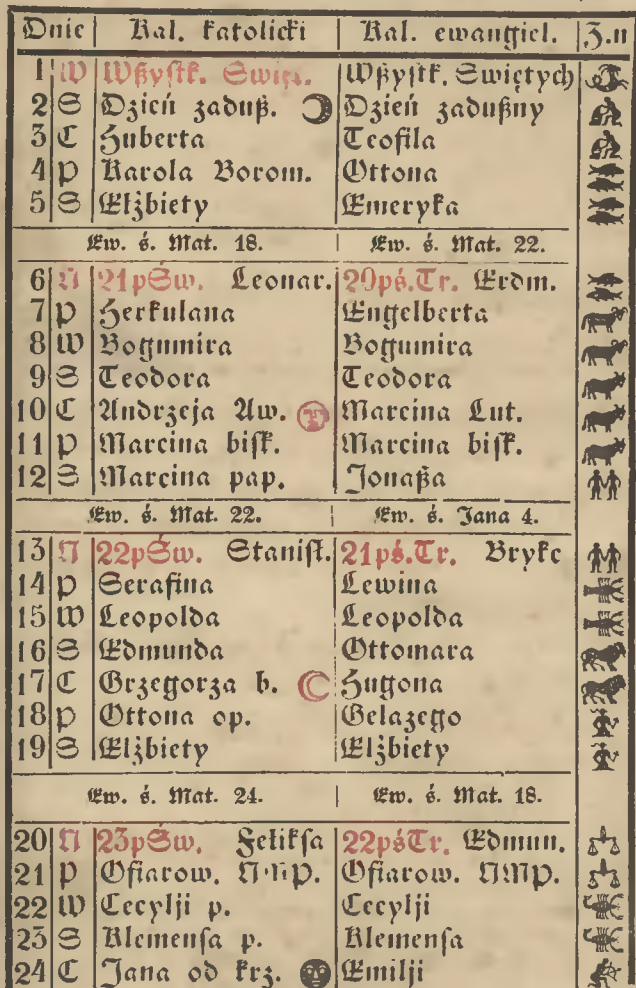 Dnie Kal. katolicki Kal. ewangiel. Z.n
1 W Wßystk. Swięt. Wßystk. Swiętych
2 S Dzień zaduß. Dzień zadußny
3 C Huberta Teofila
4 P Karola Borom. Ottona
5 S Elżbiety Emeryka
Ew. ś. Mat. 18. Ew. ś. Mat. 22.
6 N 21pŚw. Leonar. 20pś.Tr. Erdm.
7 P Herkulana Engelberta
8 W Bogumira Bogumira
9 S Teodora Teodora
10 C Andrzeja Aw. Marcina Lut.
11 P Marcina bisk. Marcina bisk.
12 S Marcina pap. Jonaßa
Ew. ś. Mat. 22. Ew. ś. Jana 4.
13 N 22pŚw. Stanisł. 21pś.Tr. Brykc
14 P Serafina Lewina
15 W Leopolda Leopolda
16 S Edmunda Ottomara
17 C Grzegorza b. Hugona
18 P Ottona op. Gelazego
19 S Elżbiety Elżbiety
Ew. ś. Mat. 24. Ew. ś. Mat. 18.
20 N 23pŚw. Feliksa 22pśTr. Edmun.
21 P Ofiarow. NMP. Ofiarow. NMP.
22 W Cecylji p. Cecylji
23 S Klemensa p. Klemensa
24 C Jana od krz. Emilji